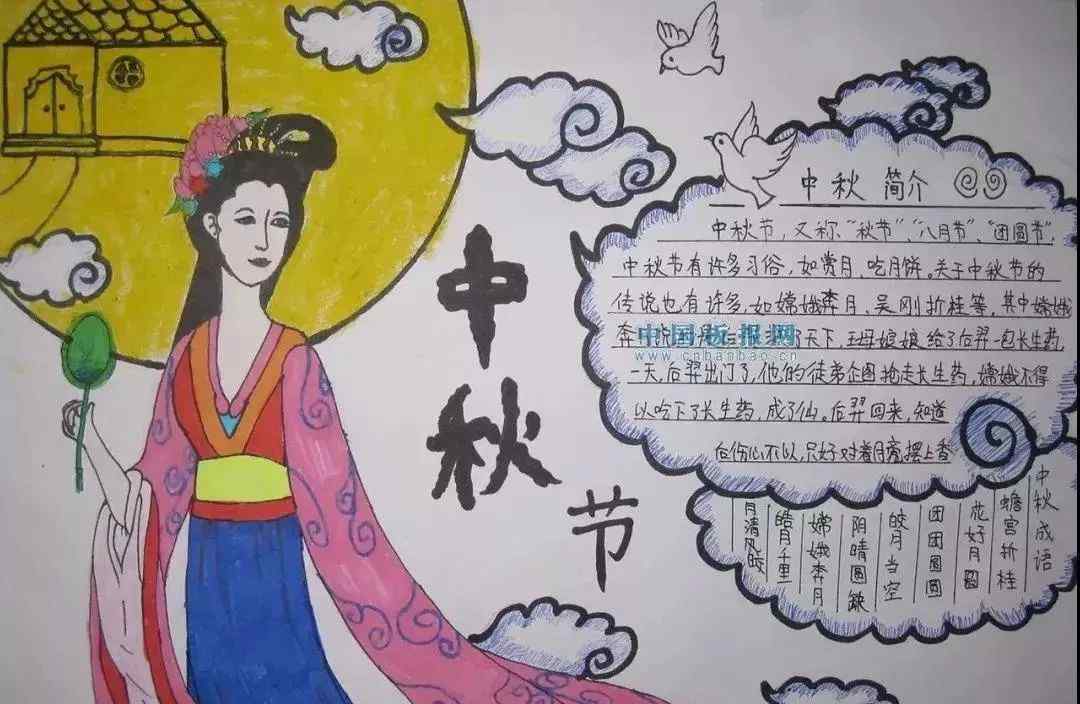 中秋节
中秋 简介
中秋节，又称“秋节”、“八月节”、“团圆节”，
中秋节有许多习俗，如赏月、吃月饼。关于中秋节的
传说也有许多，如嫦娥奔月、吴刚折桂等，其中嫦娥
奔 了天下，王母娘娘给了后羿一包长生药，
一天，后羿出门了，他的徒弟企图抢走长生药，嫦娥不得
以吃下了长生药，成了仙。后羿回来，知道
后伤心不以，只好对着月亮摆上香
中国板报网
www.cnbanbao.cn
中秋成语
蟾宫折桂
花好月圆
团团圆圆
皎月当空
阴晴圆缺
嫦娥奔月
皓月千里
月清风皎